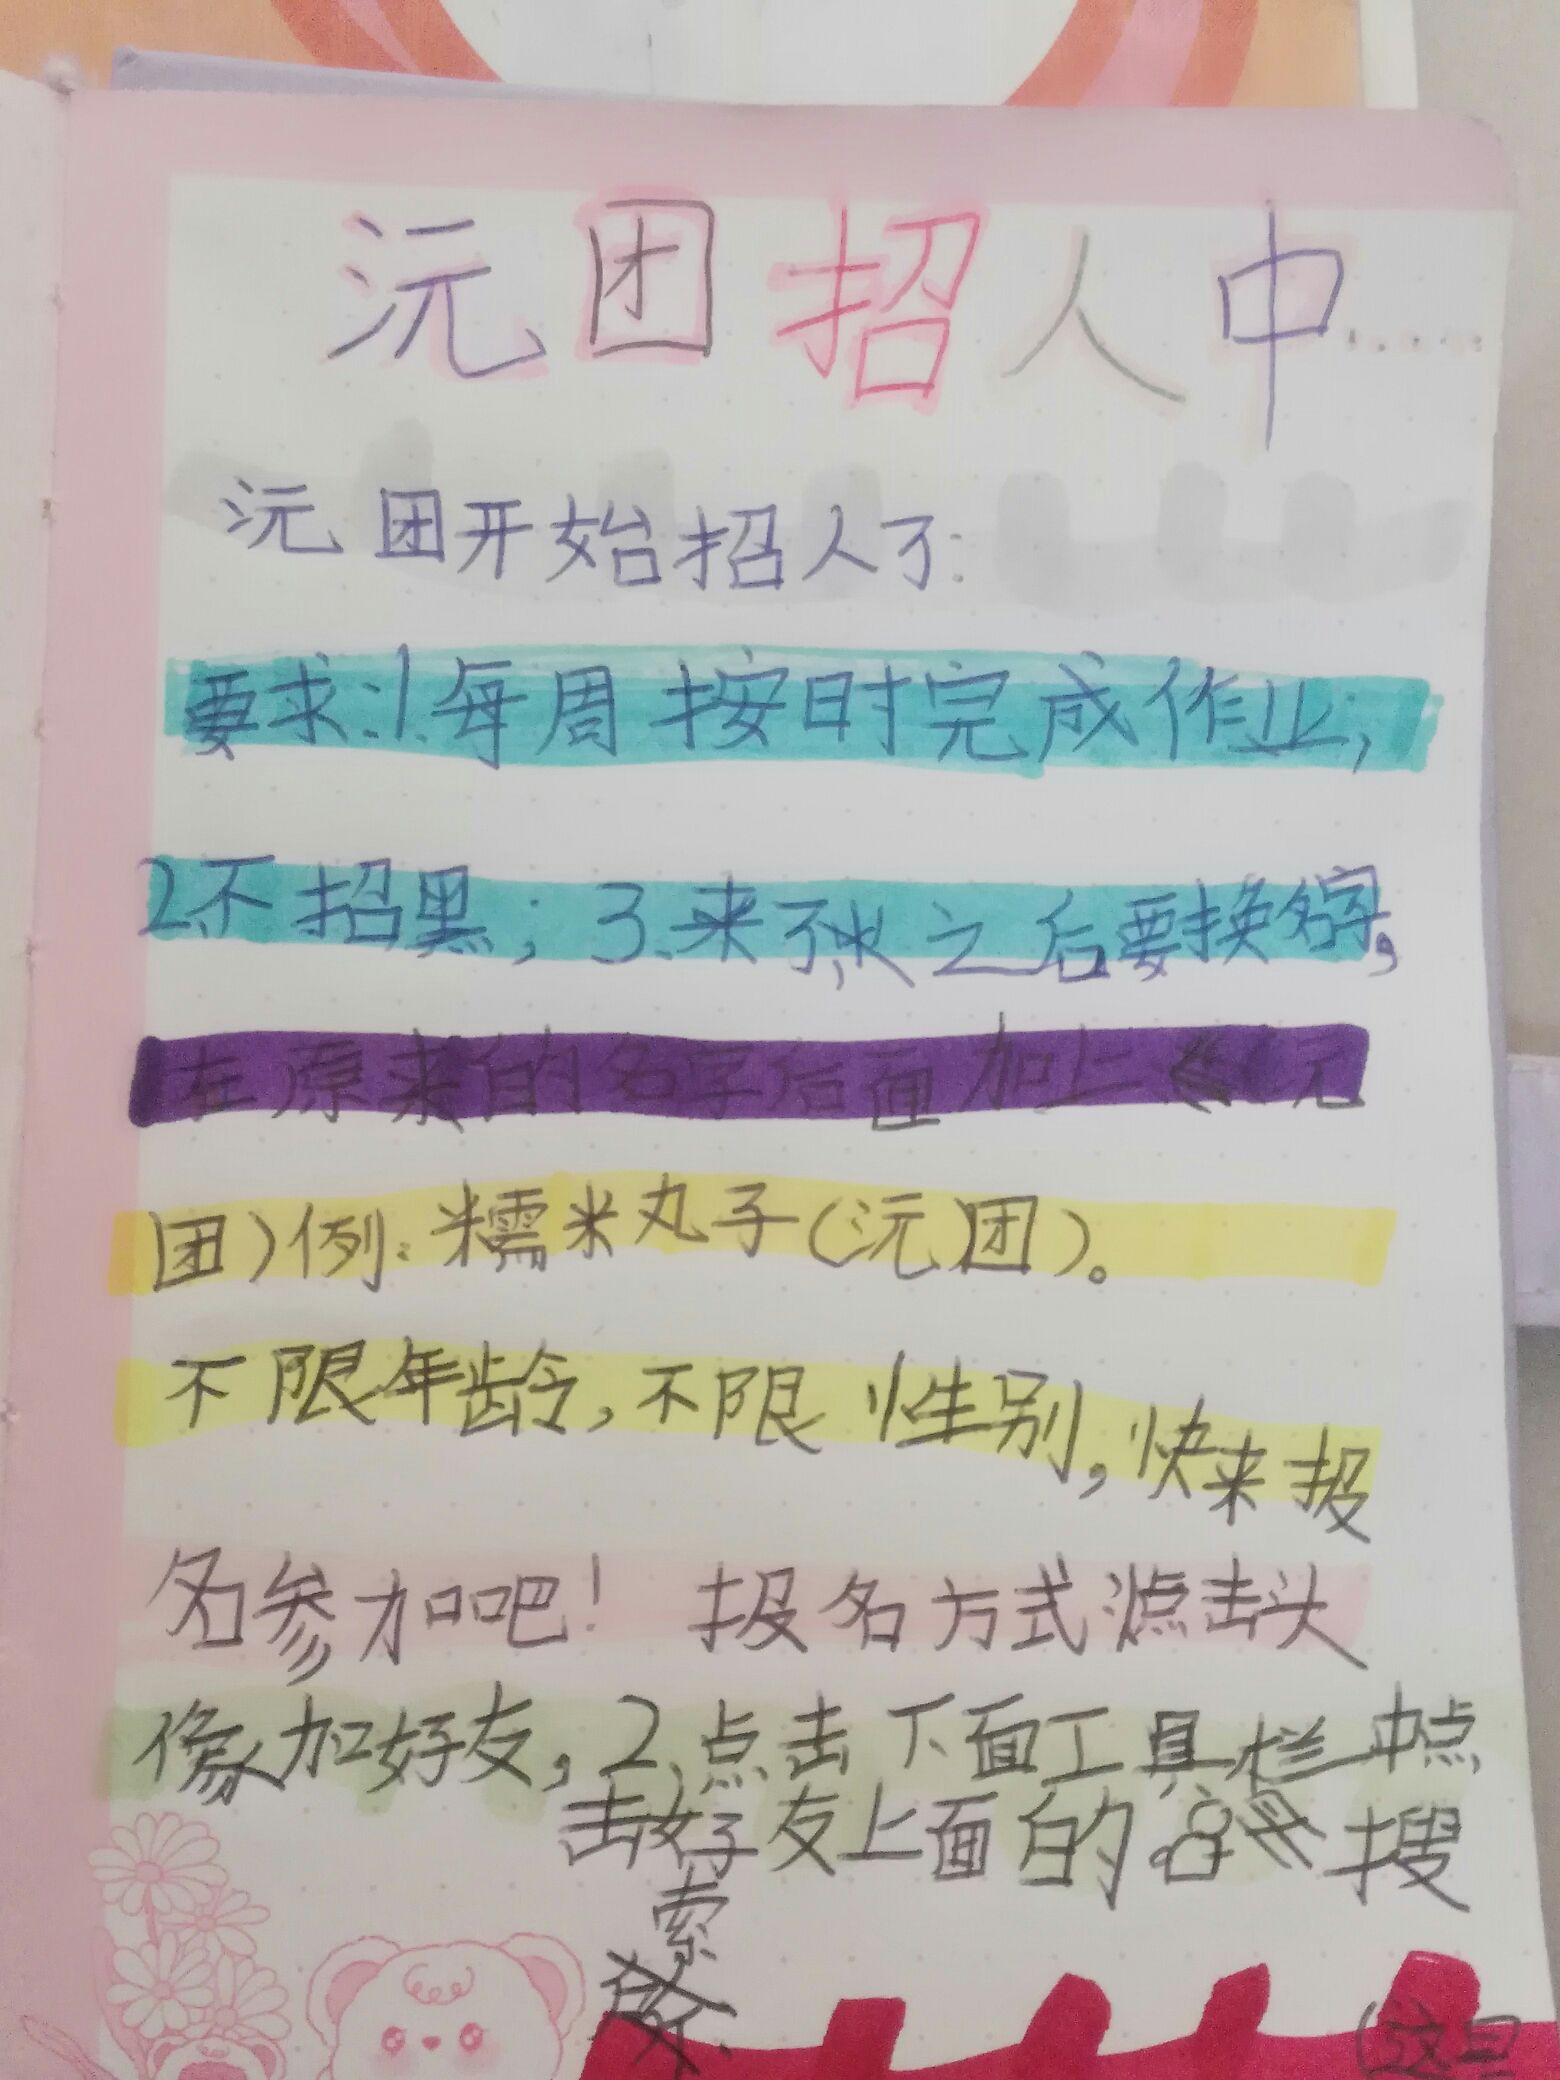 沅团招人中......
沅团开始招人了:
要求:1.每周按时完成作业;
2.不招黑;3.来了之后要换名字,
在原来的名字后面加上(沅
团)例:糯米丸子(沅团)。
不限年龄,不限性别,快来报
名参加吧!报名方式点击头
像加好友,2.点击下面工具栏中点
击好友上面的 搜
索
(这是